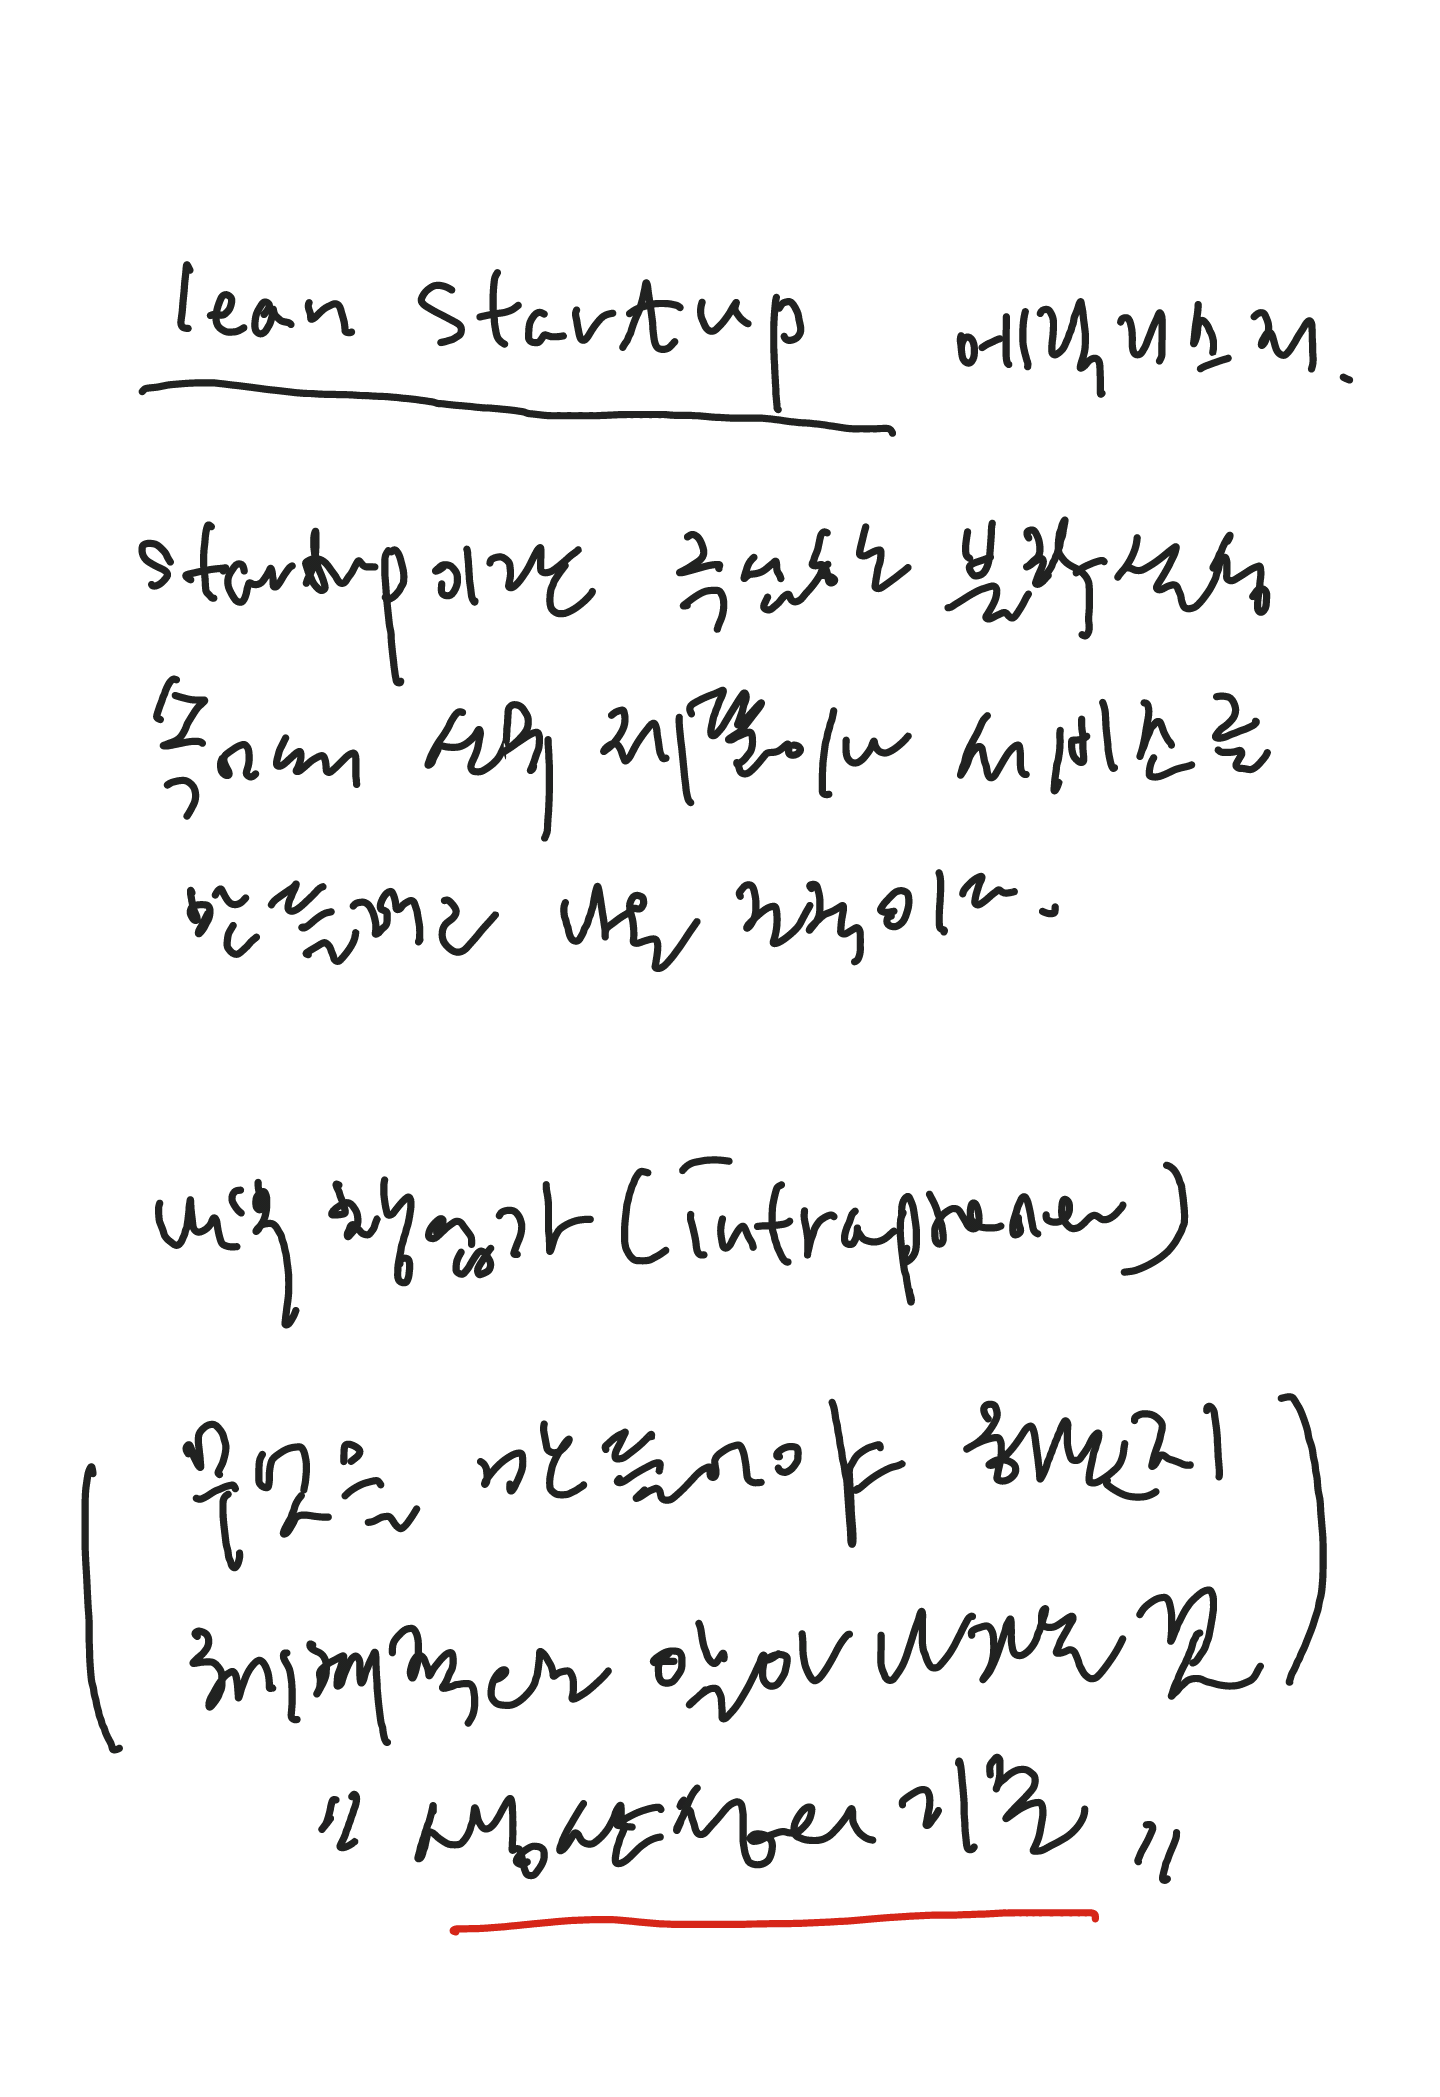 lean startup 에릭리스 저.
startup이란 극심한 불확실성
속에서 신규 제품이나 서비스를
만들려고 나온 조직이다.
사내 창업가 (intrapreneur)
무엇을 만들어야 하는지
최대한 빨리 알아내는 것
"생산성의 기준"